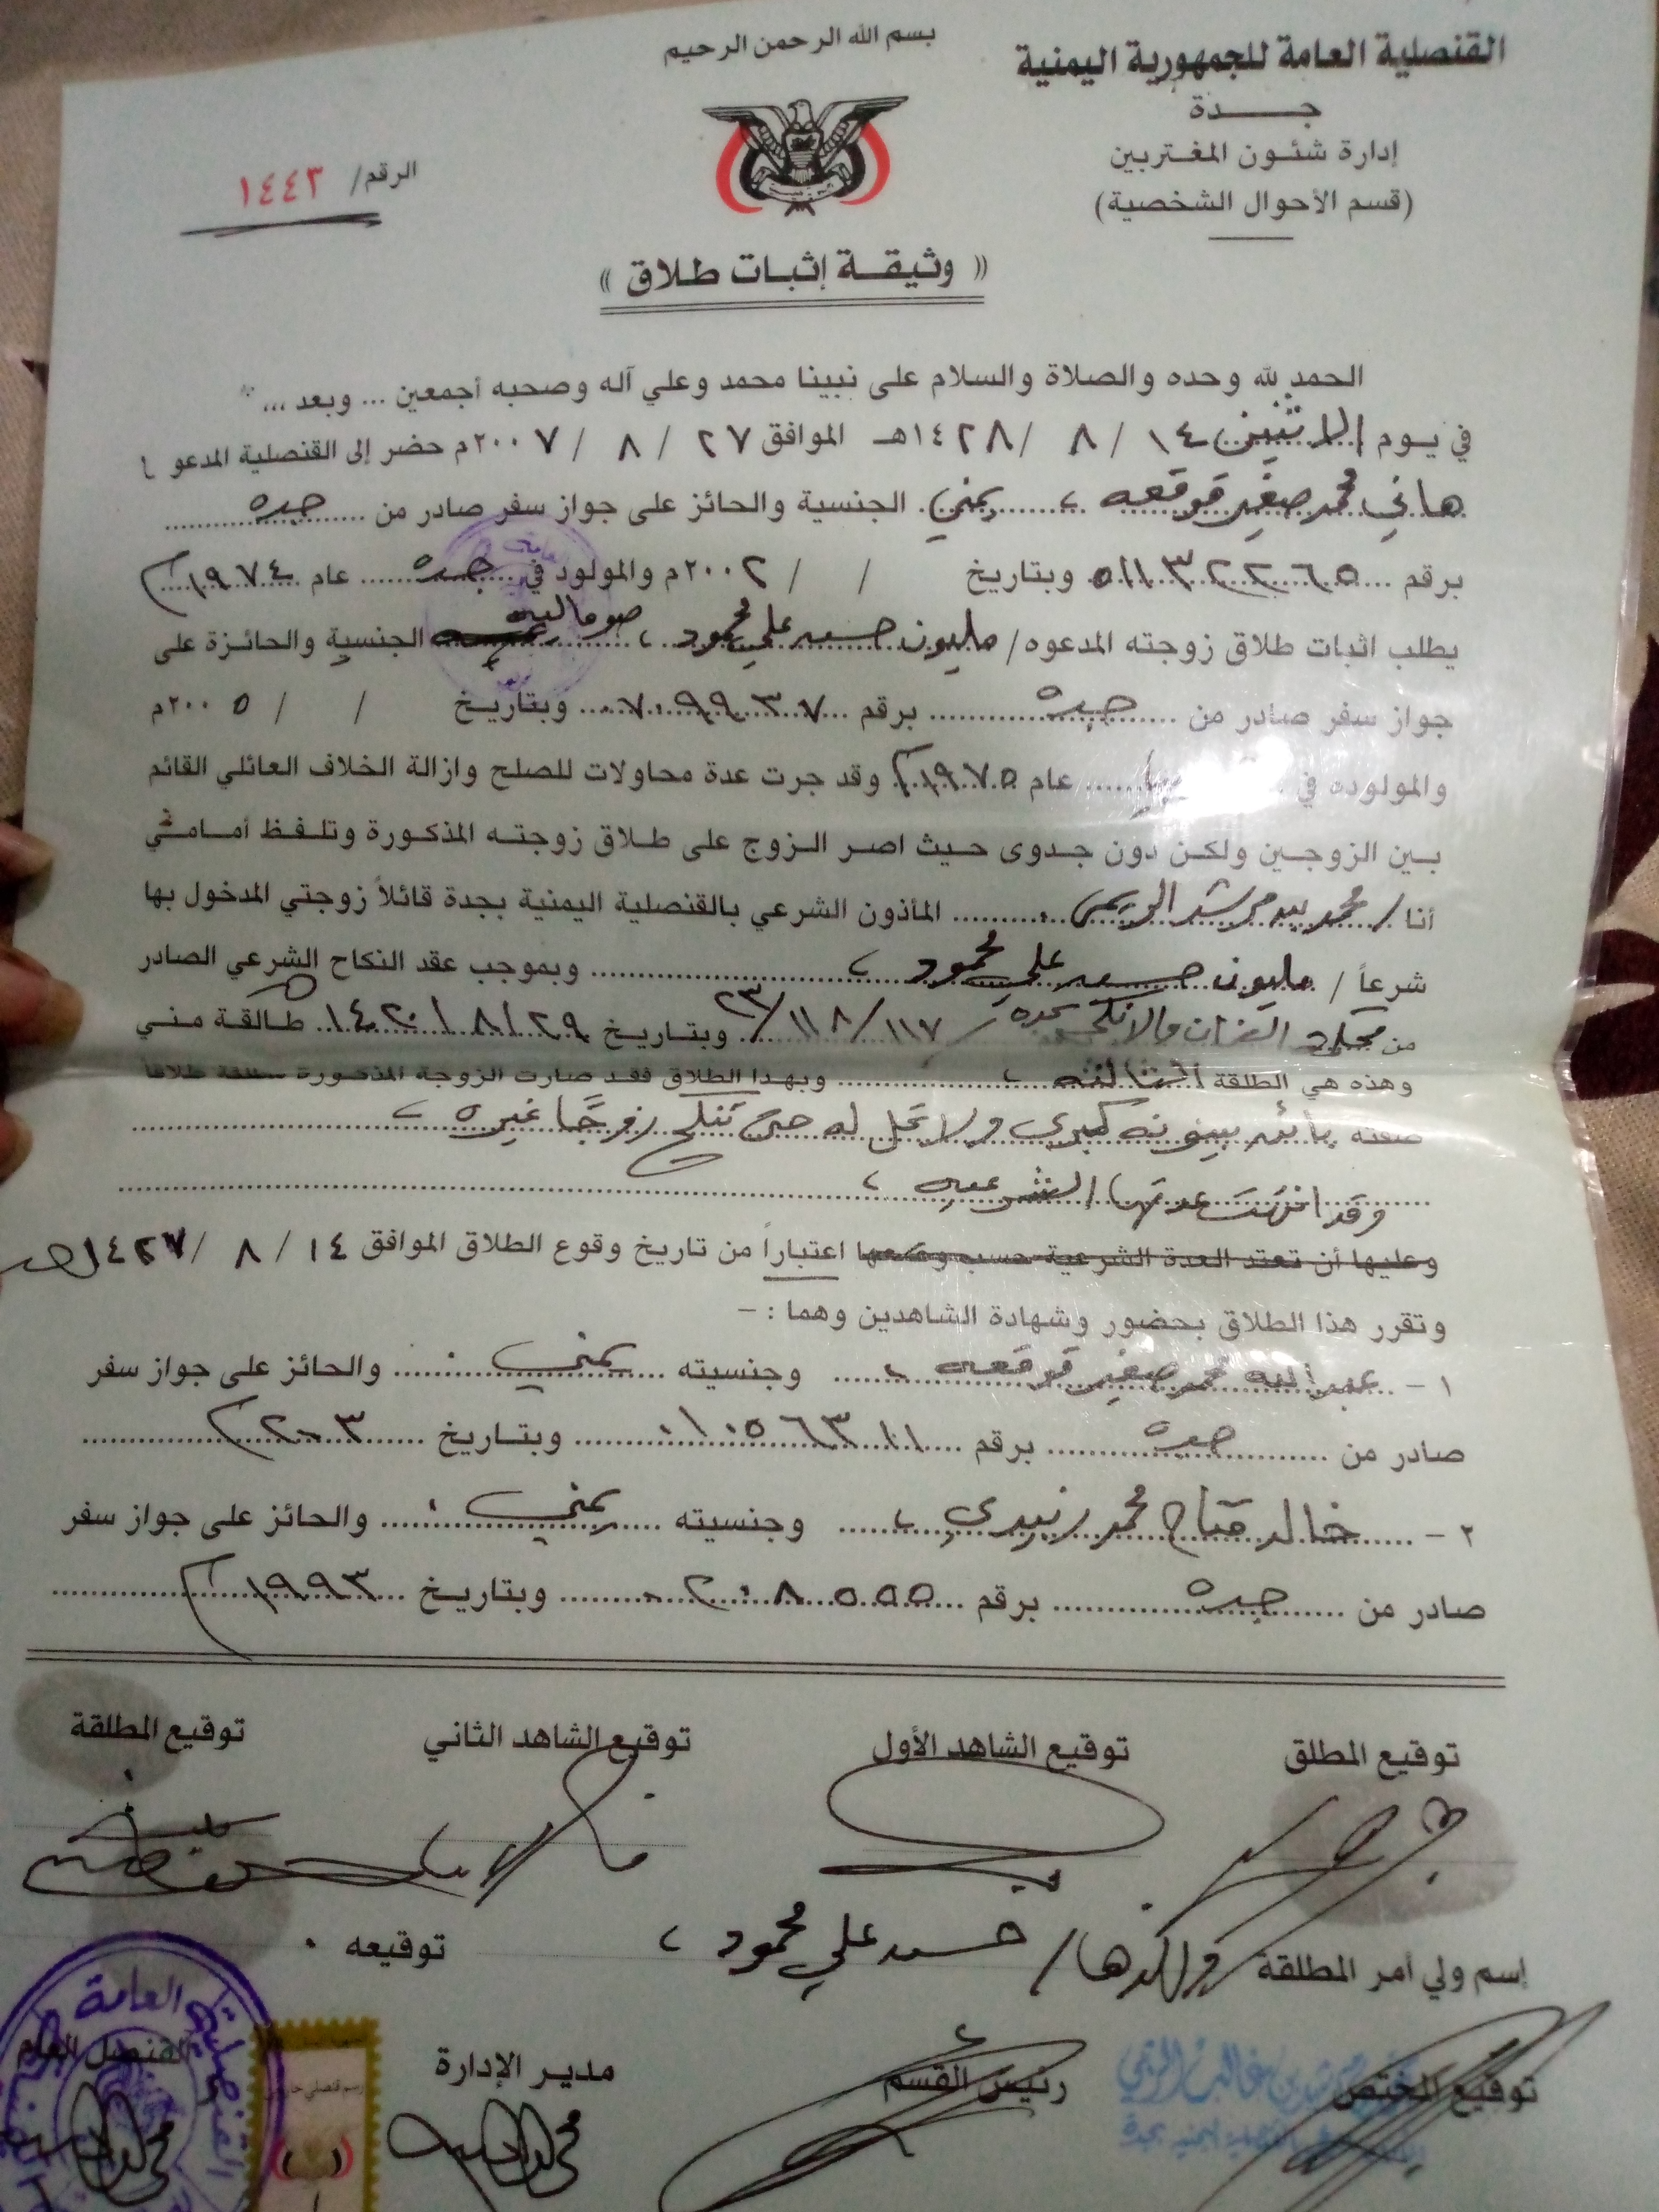 القنصلية العامة للجمهورية اليمنية
جـــدة
إدارة شئـون المغـتربين
(قسم الأحوال الشخصية)
بسم الله الرحمن الرحيم
الرقم/ ١٤٤٣
(( وثيقـة إثبـات طـلاق ))
الحمد لله وحده والصلاة والسلام على نبينا محمد وعلي آله وصحبه أجمعين ... وبعد ...
في يـوم الاثنين ١٤ / ٨ / ١٤٢٨هـ الموافق ٢٧ / ٨ / ٢٠٠٧م حضر إلى القنصلية المدعو /
هاني محمد صغير قوقعه ، يمني الجنسية والحائز على جواز سفر صادر من جده
برقم ٠١١٣٢٢٦٥ وبتاريخ / / ٢٠٠٢م والمولود في جده عام ١٩٧٤م
يطلب اثبات طلاق زوجته المدعوه / مليون حسن علي محمود ، صوماليه الجنسية والحائـزة على
جواز سفر صادر من جده برقم ٠٧٠٩٩٣٧ وبتاريـخ / / ٢٠٠٥م
والمولوده في عام ١٩٧٥م وقد جرت عدة محاولات للصلح وازالة الخلاف العائلي القائم
بـين الزوجـين ولكـن دون جـدوى حـيث اصـر الـزوج على طـلاق زوجتـه المذكـورة وتلـفـظ أمـامـي
أنا / محمد مرشد المأذون الشرعي بالقنصلية اليمنية بجدة قائلاً زوجتي المدخول بها
شرعاً / مليون حسن علي محمود ، وبموجب عقد النكاح الشرعي الصادر
من والانكحه بجده / ١١٧/١١٨/٢٣ وبتاريـخ ٢٩/٨/١٤٢٠هـ طـالقـة مـنـي
وهذه هي الطلقة الثالثه ، وبهـذا الطلاق فقـد صارت الزوجة المذكـورة مطلقة طلاقاً
صفته بائنه بينونه كبرى ولا تحل له حتى تنكح زوجًا غيره ،
وقد انتهت عدتها الشرعيه ،
وعليها أن تعتد العدة الشرعية حسب وضعها اعتباراً من تاريخ وقوع الطلاق الموافق ١٤ / ٨ / ١٤٢٧هـ
وتقرر هذا الطلاق بحضور وشهادة الشاهدين وهما : -
١ - عبدالله محمد صغير قوقعه ، وجنسيته يمني . والحائز على جواز سفر
صادر من جده برقم ٠١٠٥٦٣١١ وبتـاريخ ٢٠٠٣م
٢ - خالد محمد زبيدي ، وجنسيته يمني . والحائز على جواز سفر
صادر من جده برقم ٠٢٠٨٥٥٥ وبتاريـخ ١٩٩٣م
توقيع المطلق توقيع الشاهد الأول توقيع الشاهد الثاني توقيع المطلقة
إسم ولي أمر المطلقة والدها / حسن علي محمود ، توقيعه .
توقيع المختص رئيس القسم مدير الإدارة القنصل العام